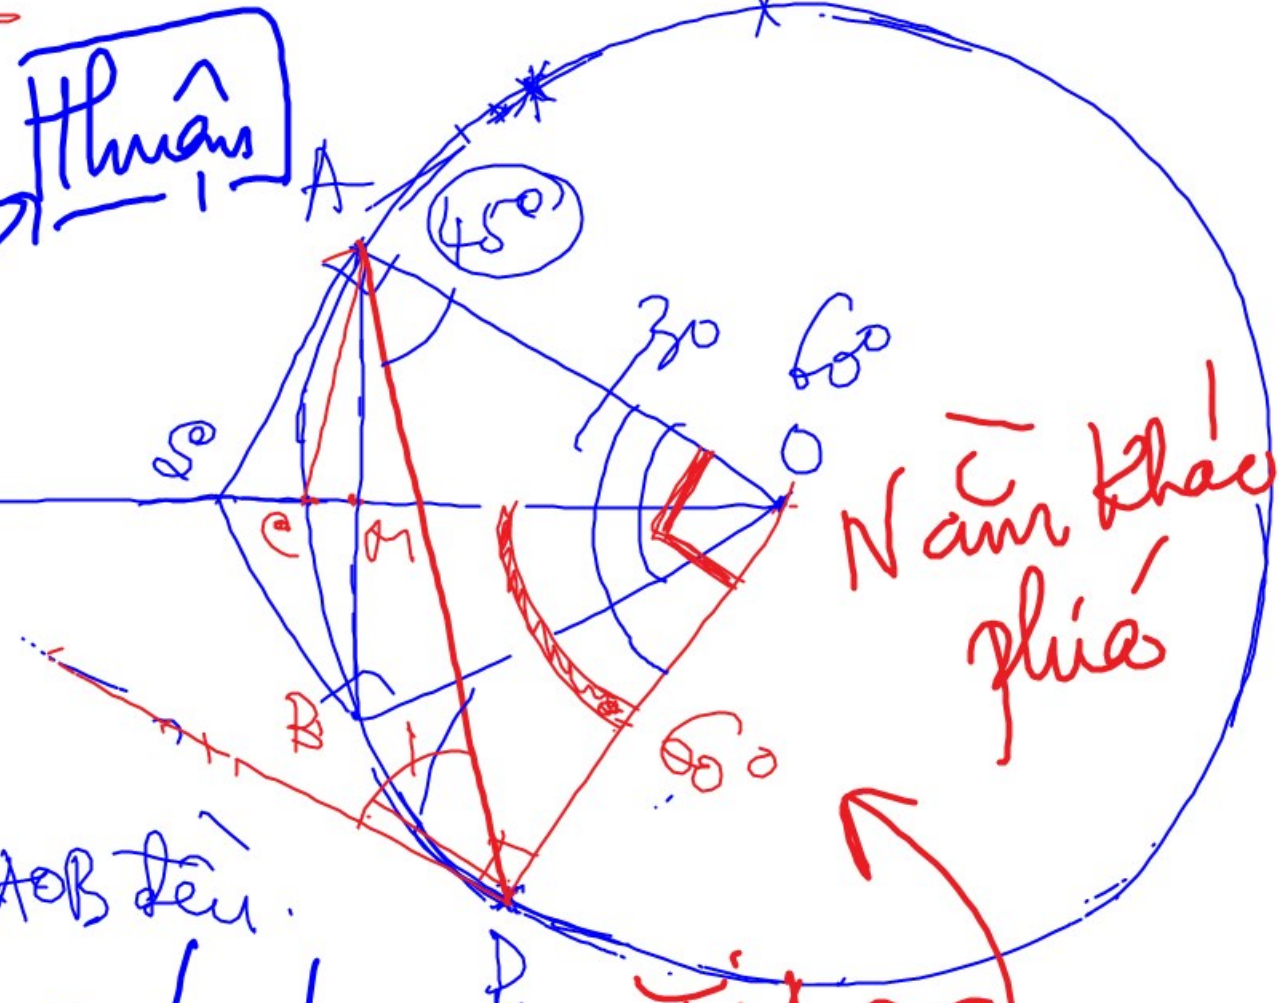 Thuận
A
45°
30
60°
O
S
C
M
Nằm khác
phía
B
60
AOB đều.
D